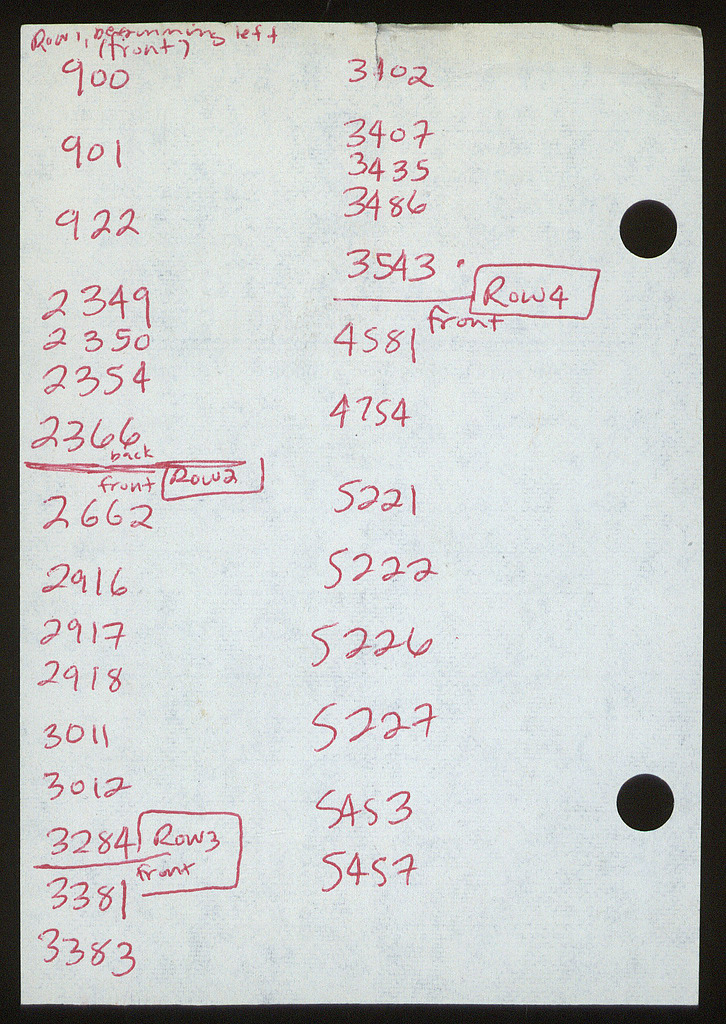 Row 1, beginning left
(front)
900
901
922
2349
2350
2354
2366
back
front Row 2
2662
2916
2917
2918
3011
3012
3284 Row 3
front
3381
3383
3102
3407
3435
3486
3543
Row 4
front
4581
4754
5221
5222
5226
5227
5453
5457